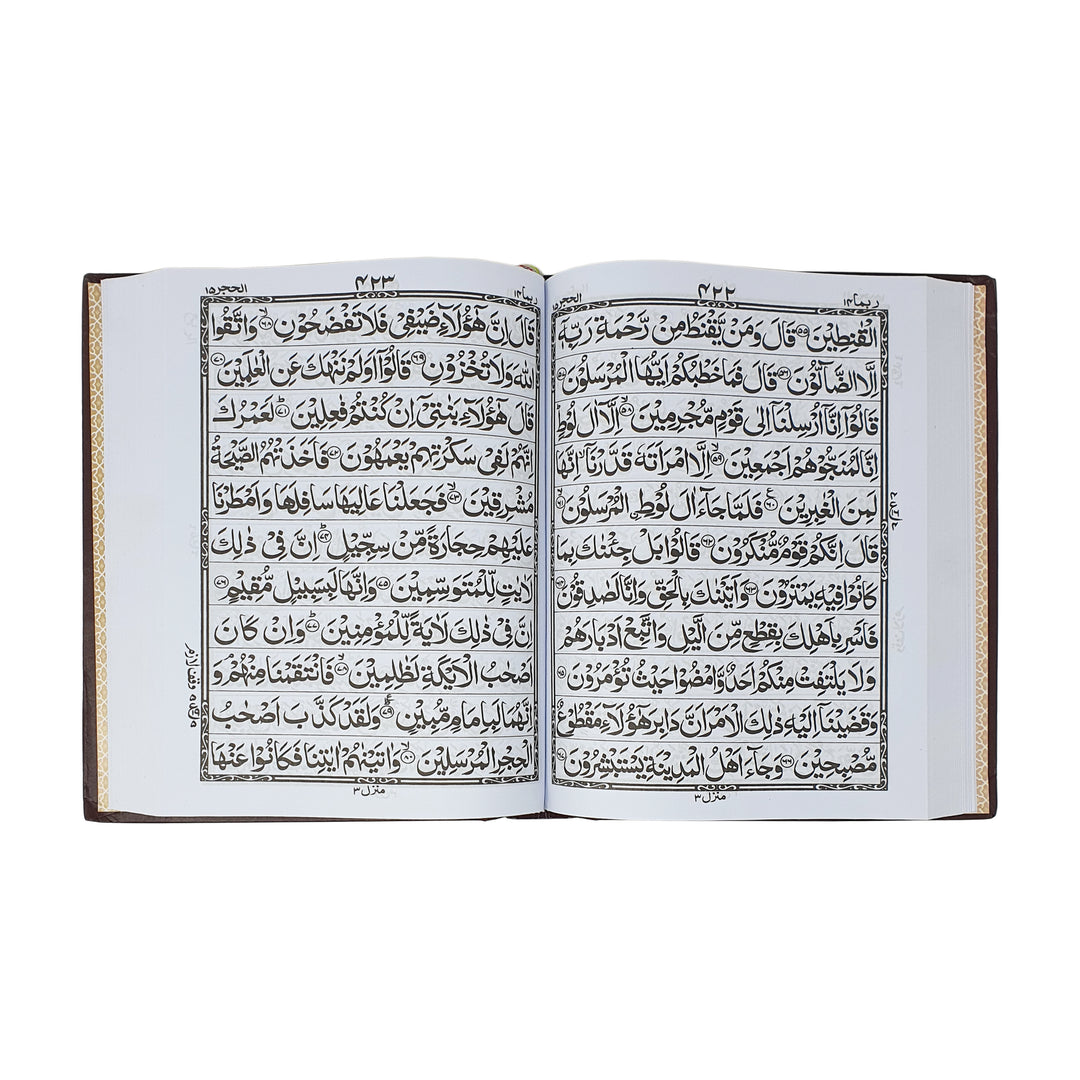 ربما ۱۴
۴۲۲
الحجر
الْقٰنِطِيْنَ ۵۵ قَالَ وَمَنْ يَّقْنَطُ مِنْ رَّحْمَةِ رَبِّهٖۤ
اِلَّا الضَّآلُّوْنَ ۵۶ قَالَ فَمَا خَطْبُكُمْ اَيُّهَا الْمُرْسَلُوْنَ
قَالُوْۤا اِنَّاۤ اُرْسِلْنَاۤ اِلٰى قَوْمٍ مُّجْرِمِيْنَ ۵۸ اِلَّاۤ اٰلَ لُوْطٍ
اِنَّا لَمُنَجُّوْهُمْ اَجْمَعِيْنَ ۵۹ اِلَّا امْرَاَتَهٗ قَدَّرْنَاۤ اِنَّهَا
لَمِنَ الْغٰبِرِيْنَ ۶۰ فَلَمَّا جَآءَ اٰلَ لُوْطِ اِۨلْمُرْسَلُوْنَ ۶۱
قَالَ اِنَّكُمْ قَوْمٌ مُّنْكَرُوْنَ ۶۲ قَالُوْا بَلْ جِئْنٰكَ بِمَا
كَانُوْا فِيْهِ يَمْتَرُوْنَ ۶۳ وَاَتَيْنٰكَ بِالْحَقِّ وَاِنَّا لَصٰدِقُوْنَ
فَاَسْرِ بِاَهْلِكَ بِقِطْعٍ مِّنَ الَّيْلِ وَاتَّبِعْ اَدْبَارَهُمْ
وَلَا يَلْتَفِتْ مِنْكُمْ اَحَدٌ وَّامْضُوْا حَيْثُ تُؤْمَرُوْنَ ۶۵
وَقَضَيْنَاۤ اِلَيْهِ ذٰلِكَ الْاَمْرَ اَنَّ دَابِرَ هٰۤؤُلَآءِ مَقْطُوْعٌ
مُّصْبِحِيْنَ ۶۶ وَجَآءَ اَهْلُ الْمَدِيْنَةِ يَسْتَبْشِرُوْنَ ۶۷
منزل ۳
ربما ۱۴
۴۲۳
الحجر ۱۵
قَالَ اِنَّ هٰۤؤُلَآءِ ضَيْفِيْ فَلَا تَفْضَحُوْنِ ۶۸ وَاتَّقُوا
اللّٰهَ وَلَا تُخْزُوْنِ ۶۹ قَالُوْۤا اَوَلَمْ نَنْهَكَ عَنِ الْعٰلَمِيْنَ ۷۰
قَالَ هٰۤؤُلَآءِ بَنٰتِيْۤ اِنْ كُنْتُمْ فٰعِلِيْنَ ۷۱ لَعَمْرُكَ
اِنَّهُمْ لَفِيْ سَكْرَتِهِمْ يَعْمَهُوْنَ ۷۲ فَاَخَذَتْهُمُ الصَّيْحَةُ
مُشْرِقِيْنَ ۷۳ فَجَعَلْنَا عَالِيَهَا سَافِلَهَا وَاَمْطَرْنَا
عَلَيْهِمْ حِجَارَةً مِّنْ سِجِّيْلٍ ۷۴ اِنَّ فِيْ ذٰلِكَ
لَاٰيٰتٍ لِّلْمُتَوَسِّمِيْنَ ۷۵ وَاِنَّهَا لَبِسَبِيْلٍ مُّقِيْمٍ ۷۶
اِنَّ فِيْ ذٰلِكَ لَاٰيَةً لِّلْمُؤْمِنِيْنَ ۷۷ وَاِنْ كَانَ
اَصْحٰبُ الْاَيْكَةِ لَظٰلِمِيْنَ ۷۸ فَانْتَقَمْنَا مِنْهُمْ وَ
اِنَّهُمَا لَبِاِمَامٍ مُّبِيْنٍ ۷۹ وَلَقَدْ كَذَّبَ اَصْحٰبُ
الْحِجْرِ الْمُرْسَلِيْنَ ۸۰ وَاٰتَيْنٰهُمْ اٰيٰتِنَا فَكَانُوْا عَنْهَا
منزل ۳